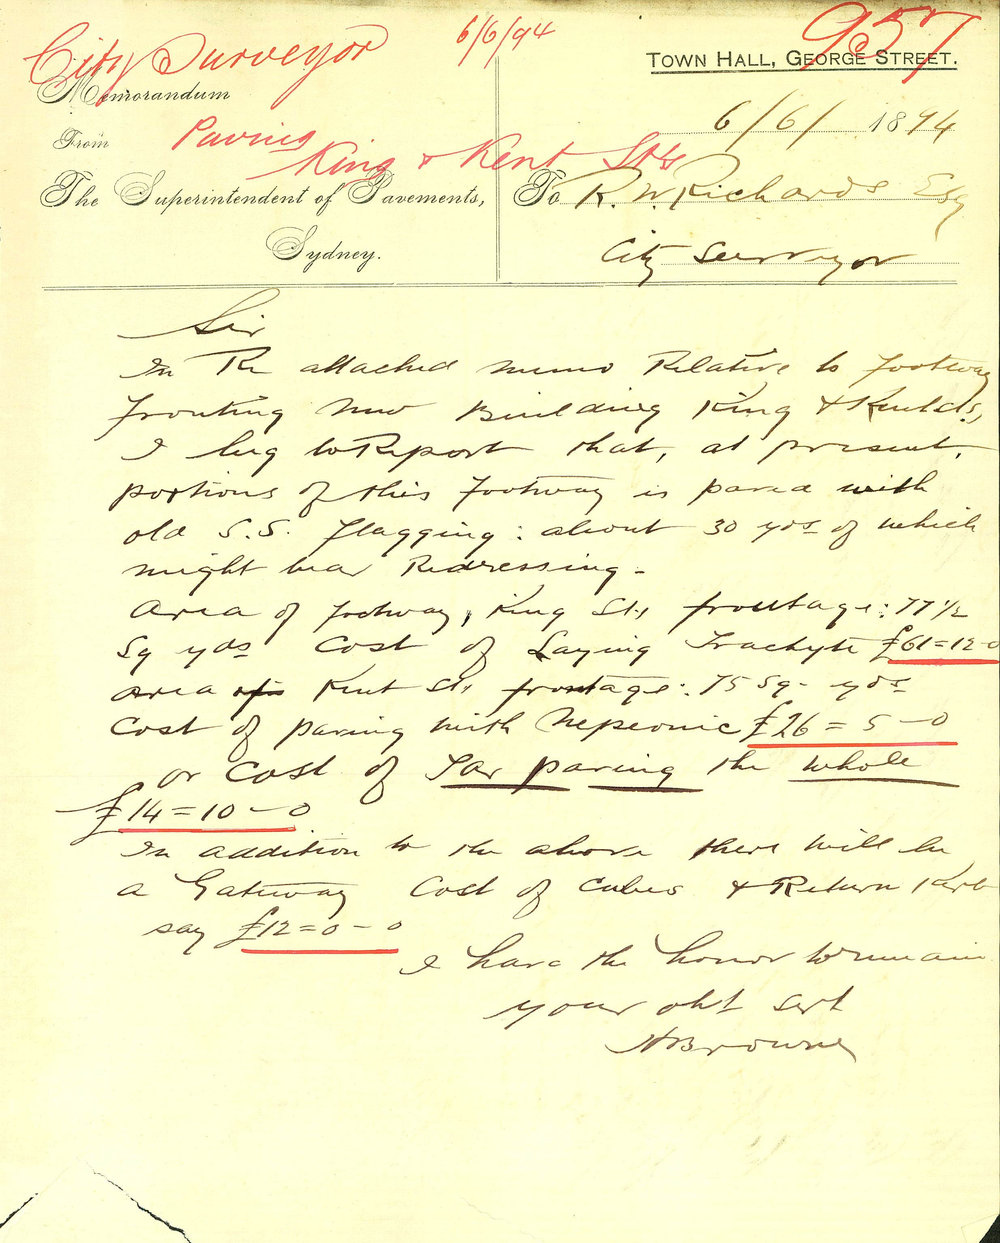 City Surveyor 6/6/94 957
TOWN HALL, GEORGE STREET.
Memorandum
6/6/ 1894
From
Paving
King & Kent Sts
The Superintendent of Pavements,
Sydney.
To R. W. Richards Esq
City Surveyor
Sir
In Re attached memo Relative to footway
fronting new Building King & Kent Sts,
I beg to Report that, at present,
portions of this footway is paved with
old S.S. flagging: about 30 yds of which
might bear Redressing -
Area of footway, King St, frontage: 77 1/2
Sq yds Cost of Laying Trachyte £61=12-0
area of Kent St, frontage: 75 Sq. yds
Cost of paving with Nepeonic £26=5-0
or Cost of Tar paving the whole
£14=10-0
In addition to the above there will be
a Gateway Cost of Cubes & Return Kerb
say £12=0-0
I have the honor to remain
your obt Servt
HBrowne